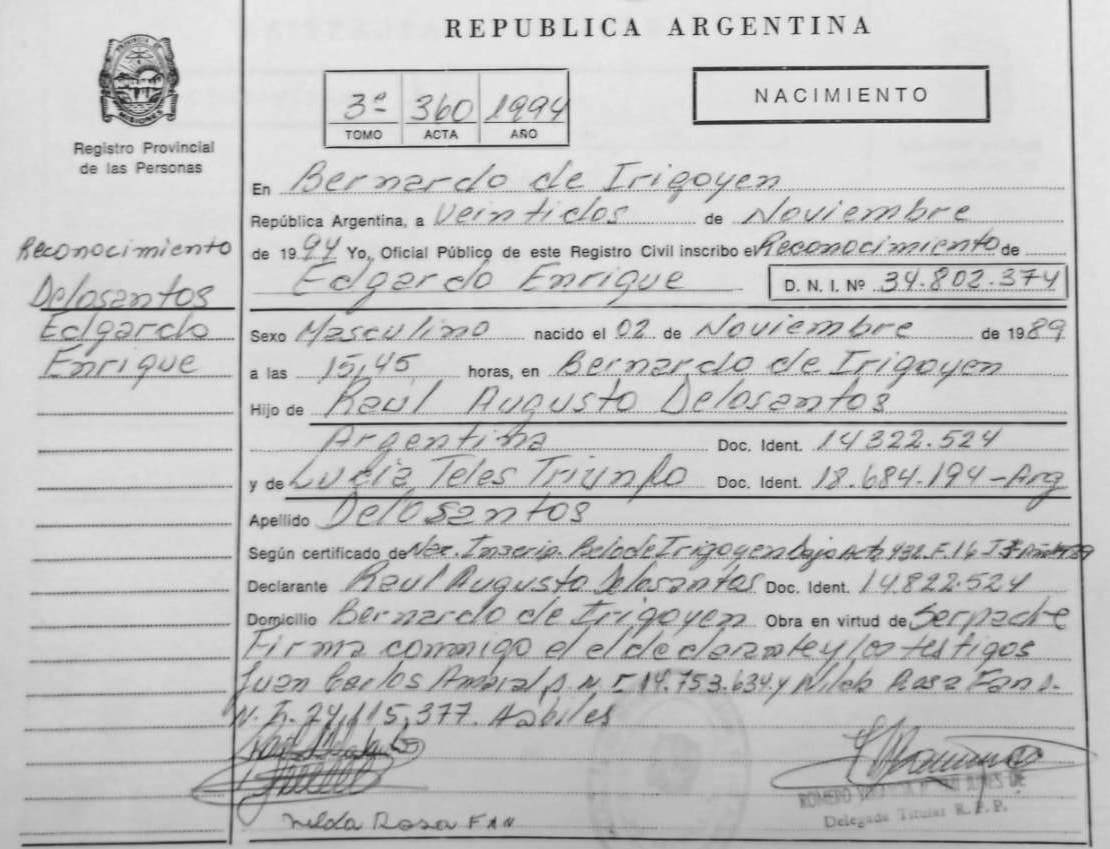 REPUBLICA ARGENTINA
PROVINCIA DE
MISIONES
Registro Provincial
de las Personas
3º 360 1994
TOMO ACTA AÑO
NACIMIENTO
En Bernardo de Irigoyen
República Argentina, a Veintidos de Noviembre
de 1994 Yo, Oficial Público de este Registro Civil inscribo el Reconocimiento de
Edgardo Enrique D. N. I. Nº 34.802.374
Reconocimiento
Delosantos
Edgardo
Enrique
Sexo Masculino nacido el 02 de Noviembre de 1989
a las 15,45 horas, en Bernardo de Irigoyen
Hijo de Raul Augusto Delosantos
Argentina Doc. Ident. 14322.524
y de Lucia Teles Triunfo Doc. Ident. 18.684.194-Arg
Apellido Delosantos
Según certificado de Nac. Inscrip. Bdo de Irigoyen bajo Acta 432 F. 16
Declarante Raul Augusto Delosantos Doc. Ident. 14.822.524
Domicilio Bernardo de Irigoyen Obra en virtud de Ser padre
Firma conmigo el el declarante y los testigos
Juan Carlos Amaral D.N.I 14.753.634 y Nilda Rosa Fan D.
N.I. 24,115,377. Habiles
nelda Rosa FAN
ROMERO
Delegada Titular R. P. P.